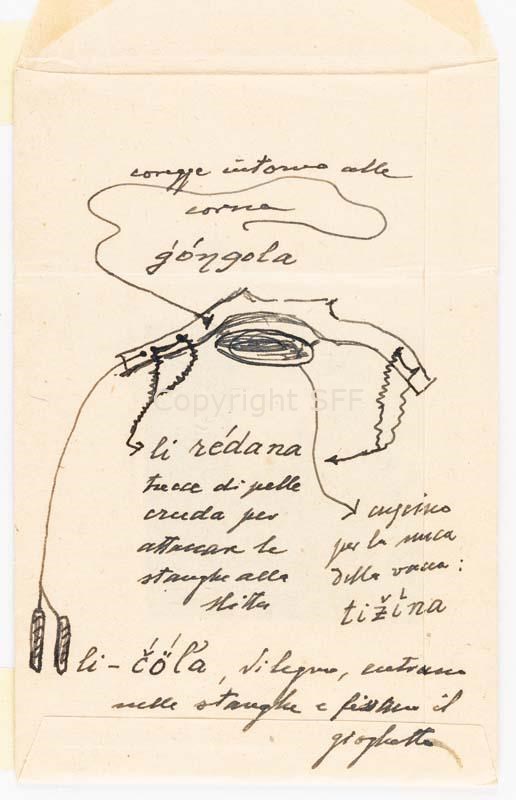 coregge intorno alle
corna
góngola
Copyright SFF
li rédana
trecce di pelle
cruda per
attaccare le
stanghe alla
slitta
cuscino
per la nuca
della vacca:
tižína
li-čö́la, di legno, entrano
nelle stanghe e fissano il
gioghetto